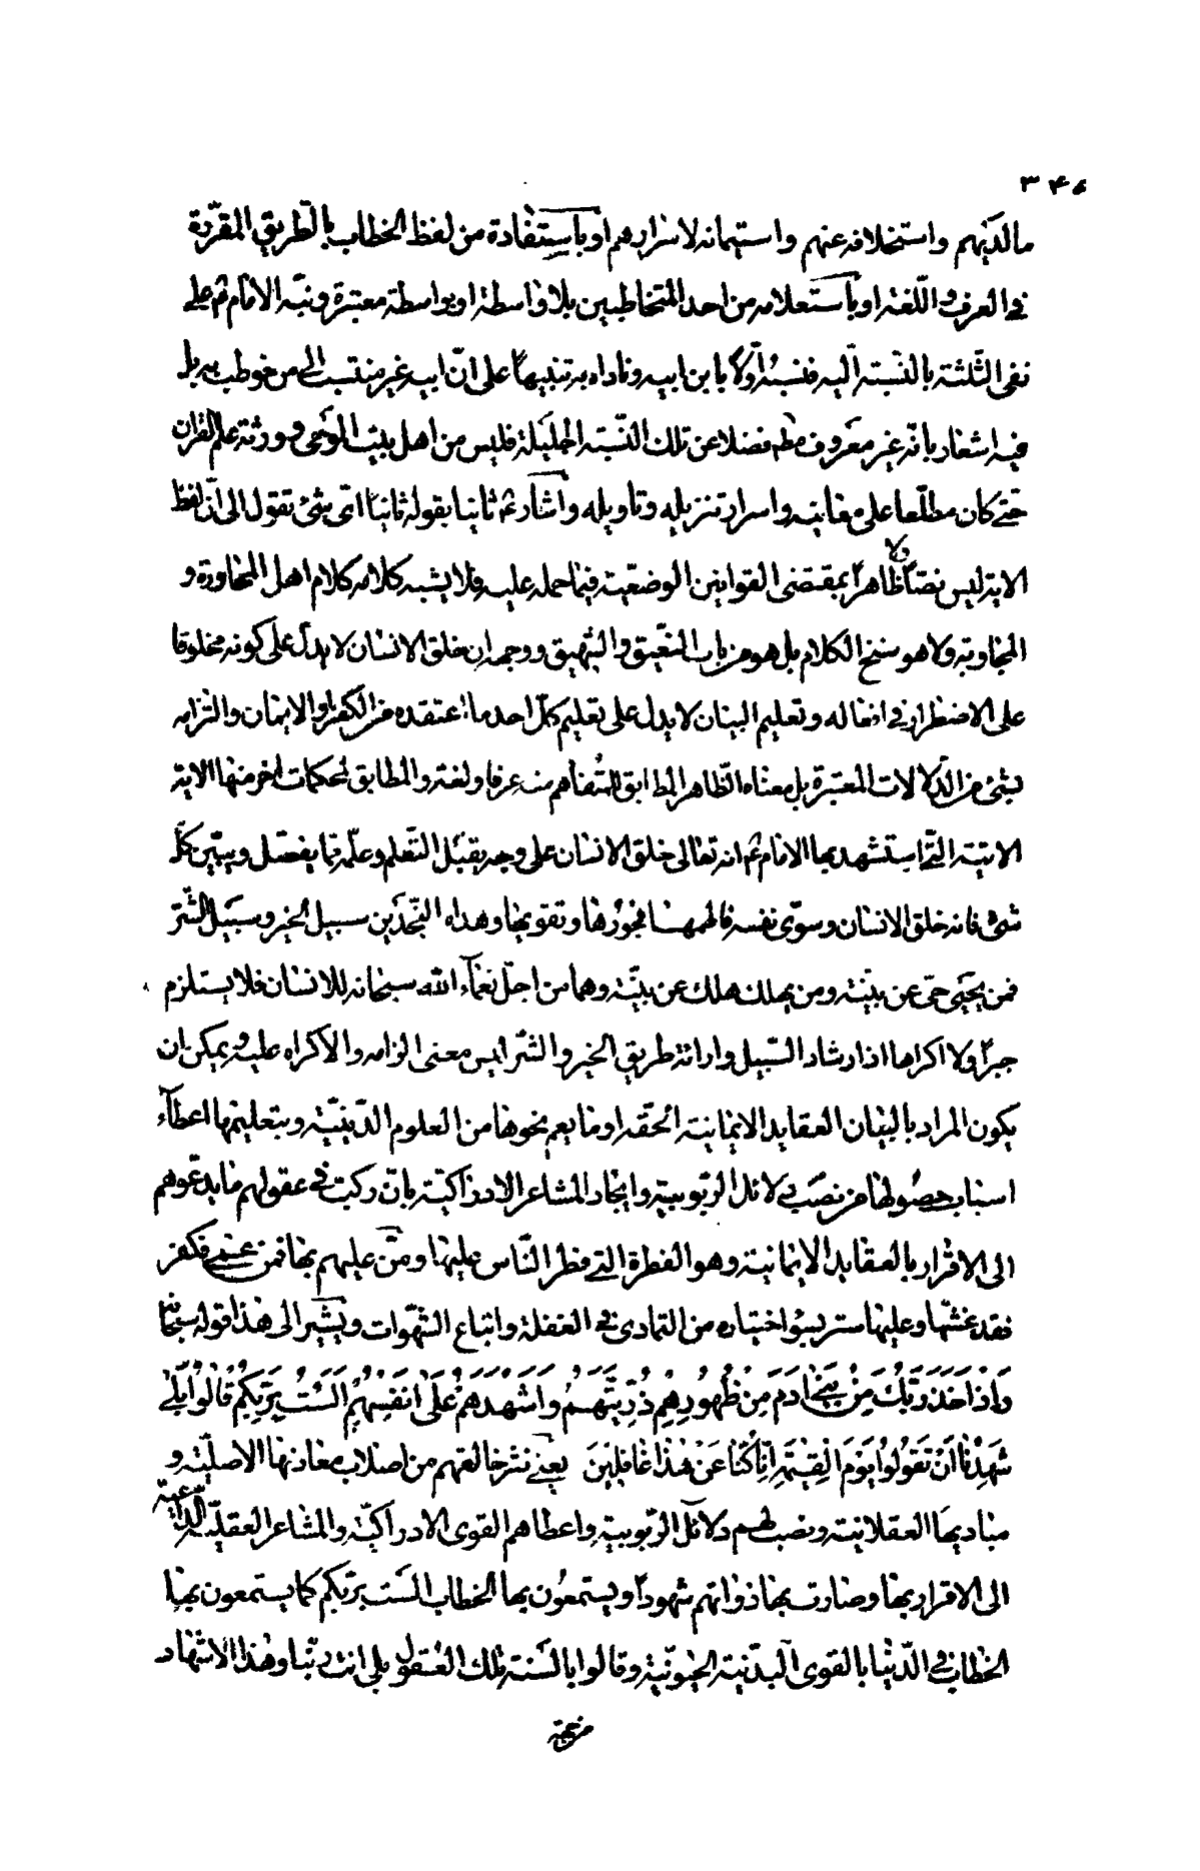 ٣٤٤
ما لديهم واستخلافه عنهم واستيمانه لاسرارهم او باستفادة من لفظ الخطاب بالطريق المقررة
في العرف واللغة او باستعلامه من احد المتخاطبين بلا واسطة او بواسطة معتبرة ونبه الامام ع على
نفى الثلثة بالنسبة اليه فنسبه اولا بابن ابيه وناداه به تنبيها على ان ابيه غير منتسب الى من خوطب به بل
فيه اشعار بانه غير معروف فضلا عن تلك النسبة الجليلة فليس من اهل بيت الوحى وورثة علم القران
حتى كان مطلعا على معانيه واسرار تنزيله وتاويله واشار ع ثانيا بقوله ثانيا اى شئ تقول الى ان لفظ
الاية ليس نصا ولا ظاهرا بمقتضى القوانين الوضعية فيما حمله عليه فلا يشبه كلامه كلام اهل المحاورة و
المجاوبة ولا هو سنخ الكلام بل هو من باب النعيق والنهيق ووجهه ان خلق الانسان لا يدل على كونه مخلوقا
على الاضطرار في افعاله وتعليم البيان لا يدل على تعليم كل احد ما اعتقده من الكفر او الايمان والتزامه
بشئ من الدلالات المعتبرة بل معناه الظاهر المطابق المتفاهم منه عرفا ولغة والمطابق لمحكمات اخر منها الاية
الاتية التي استشهد بها الامام ع انه تعالى خلق الانسان على وجه يقبل التعلم وعلمه ما يفصل ويبين كل
شئ فانه خلق الانسان وسوى نفسه فالهمها فجورها وتقويها وهداه النجدين سبيل الخير وسبيل الشر
فمن يحيى حى عن بينة ومن يهلك هلك عن بينة وهما من اجل نعماء الله سبحانه للانسان فلا يستلزم
جبرا ولا اكراها اذ ارشاد السبيل وارائة طريق الخير والشر ليس معنى الزامه والاكراه عليه ويمكن ان
يكون المراد بالبيان العقايد الايمانية الحقه او ما يعم نحوها من العلوم الدينية وبتعليمها اعطاء
اسباب حصولها من نصب دلائل الربوبية وايجاد المشاعر الادراكية بان ركبت في عقولهم ما يدعوهم
الى الاقرار بالعقايد الايمانية وهو الفطرة التي فطر الناس عليها ومن عليهم بها فمن عنه فكفر
فقد غشها وعليها ستر بسوء اختياره من التمادى في الغفلة واتباع الشهوات ويشير الى هذا قوله سبحانه
وَاِذْ اَخَذَ رَبُّكَ مِنْ بَنِي ادَمَ مِنْ ظُهُورِهِمْ ذُرِّيَّتَهُمْ وَاَشْهَدَهُمْ عَلَى اَنْفُسِهِمْ اَلَسْتُ بِرَبِّكُمْ قَالُوا بَلَى
شَهِدْنَا اَنْ تَقُولُوا يَوْمَ الْقِيمَةِ اِنَّا كُنَّا عَنْ هٰذَا غَافِلِينَ يعني نثر حقايقهم من اصلاب معادنها الاصلية و
مباديها العقلانية ونصب لهم دلائل الربوبية واعطاهم القوى الادراكية والمشاعر العقلية الداعية
الى الاقرار بها وصارت بها ذواتهم شهودا ويستمعون بها الخطاب الست بربكم كما يستمعون بهذا
الخطاب في الدنيا بالقوى البدنية الحيوانية وقالوا بالسنة تلك العقول بلى انت ربنا وهذا الاشهاد
من جهة